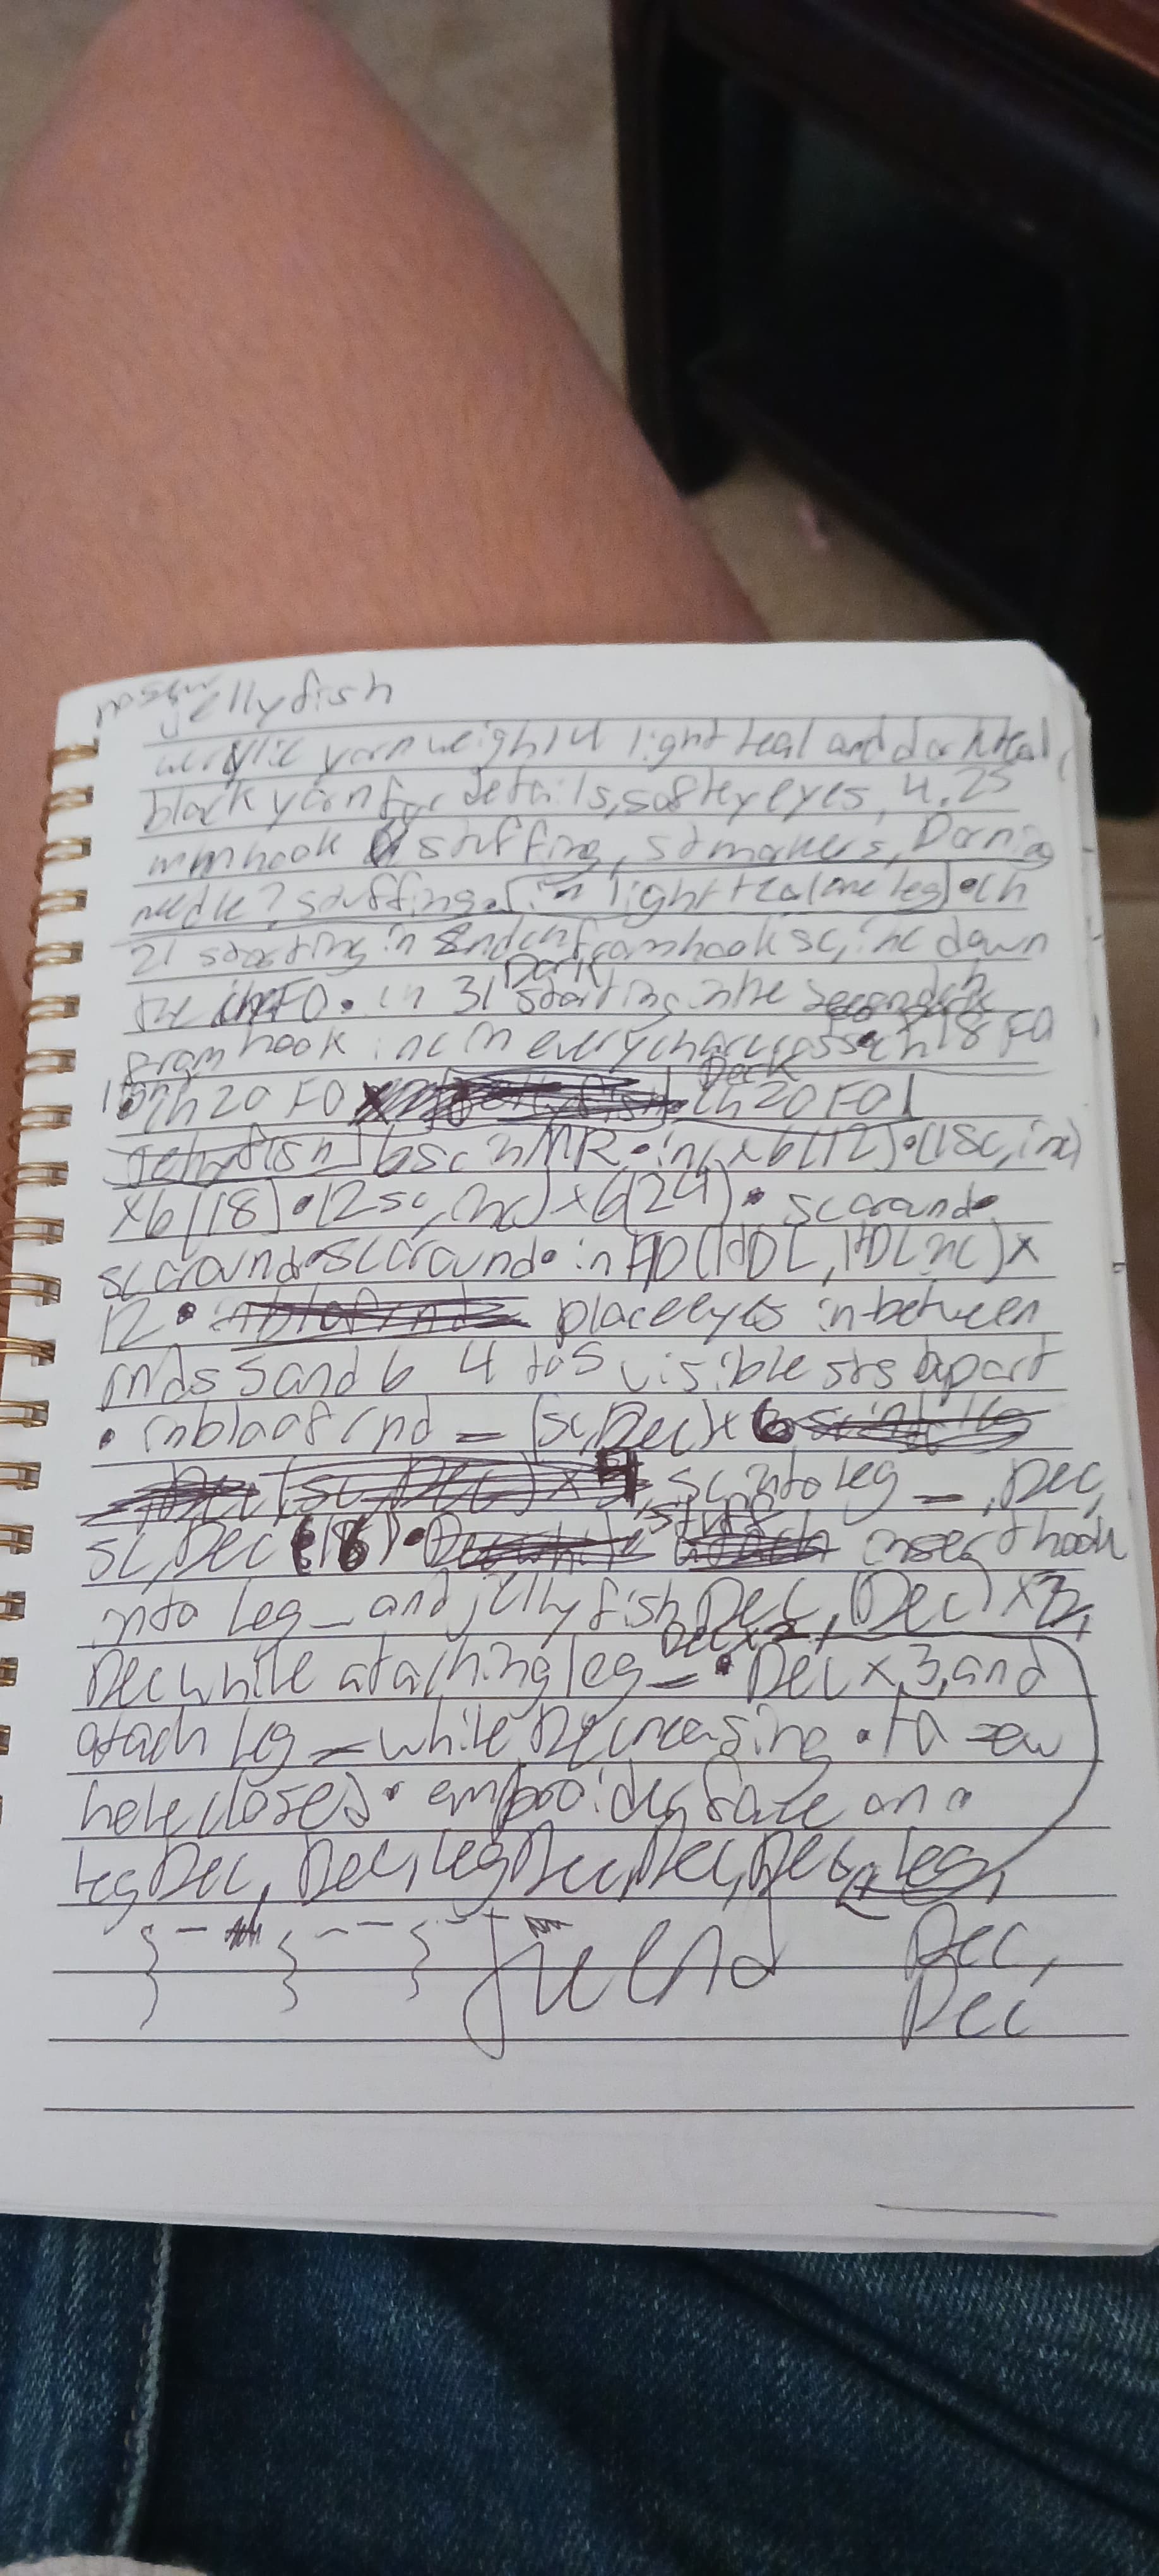 no sew
jellyfish
acrylic yarn weight 4 light teal and dark teal,
black yarn for details, saftey eyes, 4.25
mm hook stuffing, st markers, Darning
needle?, stuffing. [in light teal one leg] • ch
21 starting in 2nd ch from hook sc, inc down
the ch FO. ch 31 Dark starting in the second ch
from hook inc in every ch across • ch 18 FO
light • ch 20 FO Dark ch 20 FO]
Jellyfish] 6 sc in MR • inc x6 (12) • (1sc, inc)
x6 (18) • (2sc, inc) x6 (24) • sc around •
sc around • sc around • in FO (HDC, HDC inc) x
12 • place eyes in between
rnds 5 and 6 4 to 5 visible sts apart
• in blo of rnd _ (sc, Dec) x 6
sc into leg _, Dec,
sc, Dec (18) • stuff insert hook
into leg _ and jellyfish, Dec, (Dec) x 2,
Dec while ataching leg _ • Dec x 3, and
atach leg _ while Decreasing • FO sew
hole closed • embroider face on •
leg Dec, Dec, leg Dec, Dec, Dec, leg,
the end Dec,
Dec